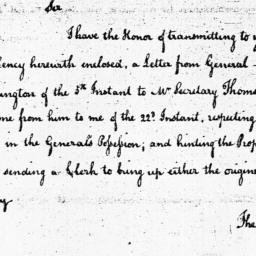 Sir
I have the Honor of transmitting to y
lency herewith enclosed, a Letter from General
ington of the 3d Instant to Mr Secretary Thoms
ne from him to me of the 22d Instant, respecting
in the General's Possession; and hinting the Prop
sending a Clerk to bring up either the origin
y
The